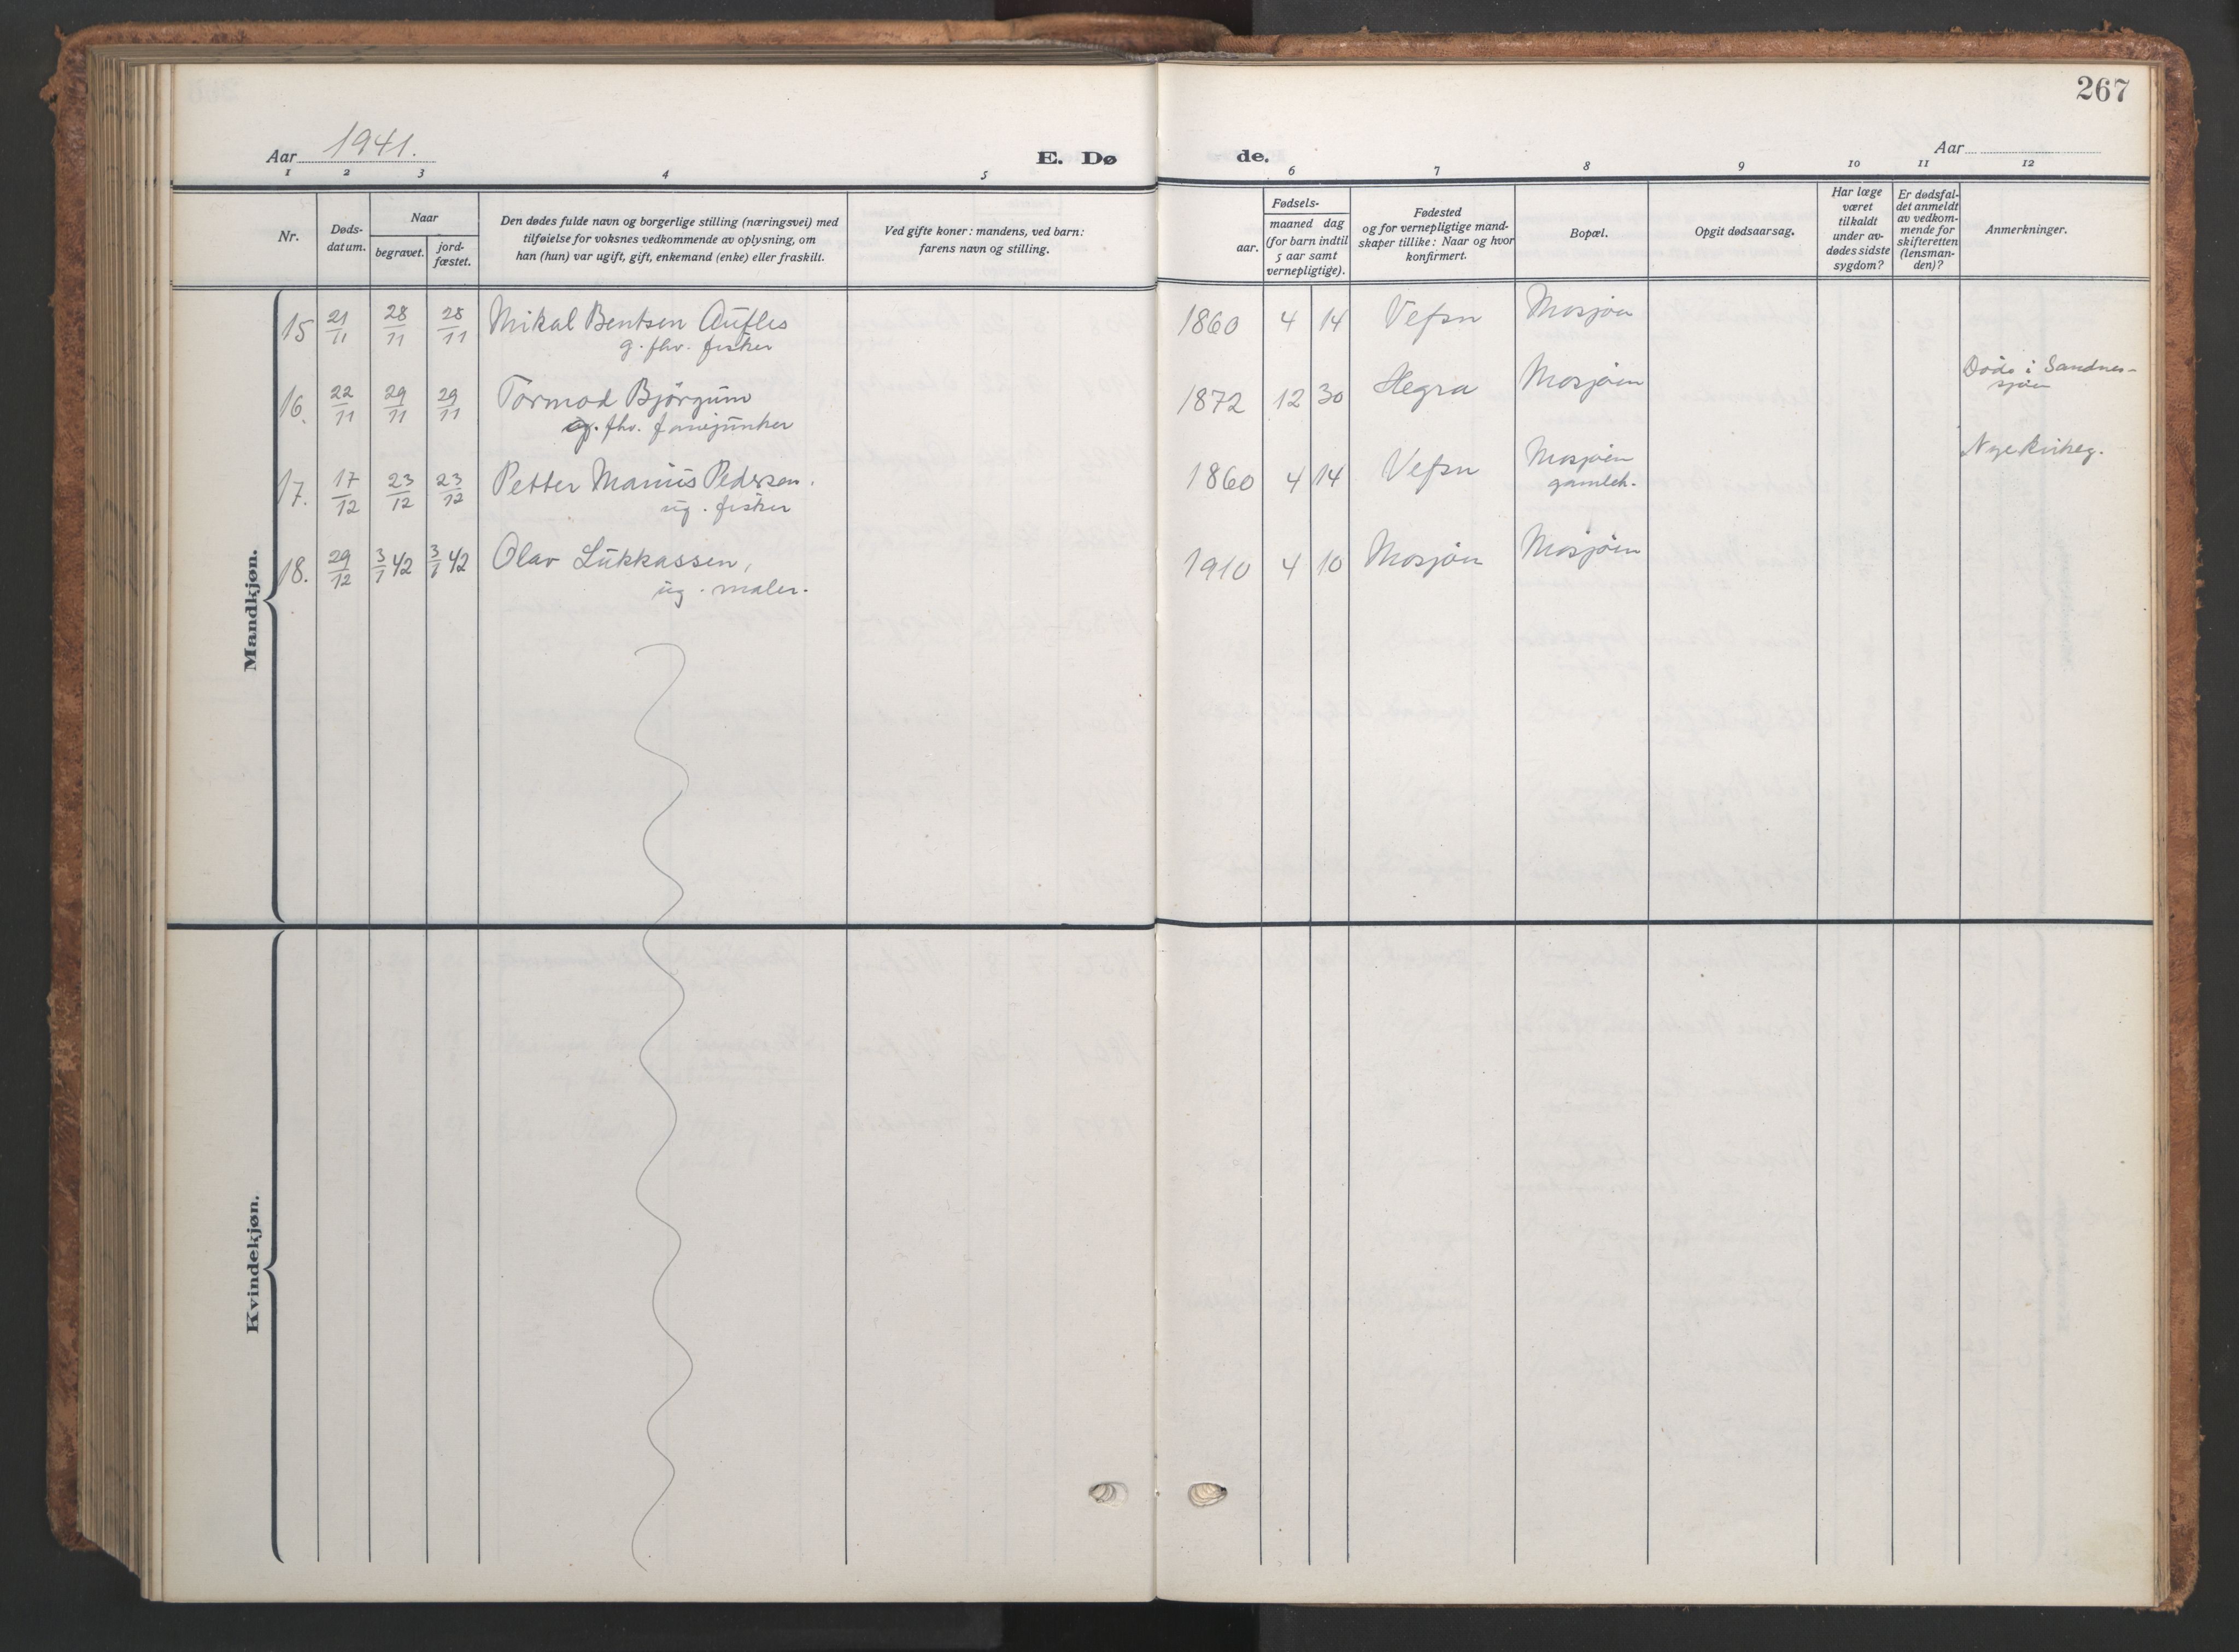 267
Aar 1941.
E. Dø
de.
Aar
1 2 3 4 5
6 7 8 9 10 11 12
Nr.
Døds-
datum.
Naar
begravet.
jord-
fæstet.
Den dødes fulde navn og borgerlige stilling (næringsvei) med
tilføielse for voksnes vedkommende av oplysning, om
han (hun) var ugift, gift, enkemand (enke) eller fraskilt.
Ved gifte koner: mandens, ved barn:
farens navn og stilling.
Fødsels-
aar.
maaned dag
(for barn indtil
5 aar samt
vernepligtige).
Fødested
og for vernepligtige mand-
skaper tillike: Naar og hvor
konfirmert.
Bopæl.
Opgit dødsaarsag.
Har læge
været
tilkaldt
under av-
dødes sidste
sygdom?
Er dødsfal-
det anmeldt
av vedkom-
mende for
skifteretten
(lensman-
den)?
Anmerkninger.
Mandkjøn.
15 21/11 28/11 28/11 Mikal Bentsen Aufles 1860 4 14 Vefsn Mosjøen
g. fhv. fisker
16. 22/11 29/11 29/11 Tormod Bjørgum 1872 12 30 Hegra Mosjøen Døde i Sandnes-
sjøen
fhv. fanejunker
17. 17/12 23/12 23/12 Petter Marius Pedersen. 1860 4 14 Vefsn Mosjøen Nye kirkeg.
ug. fisker gamleh.
18. 29/12 3/1 42 3/1 42 Olav Lukkassen, 1910 4 10 Mosjøen Mosjøen
ug. maler.
Kvindekjøn.